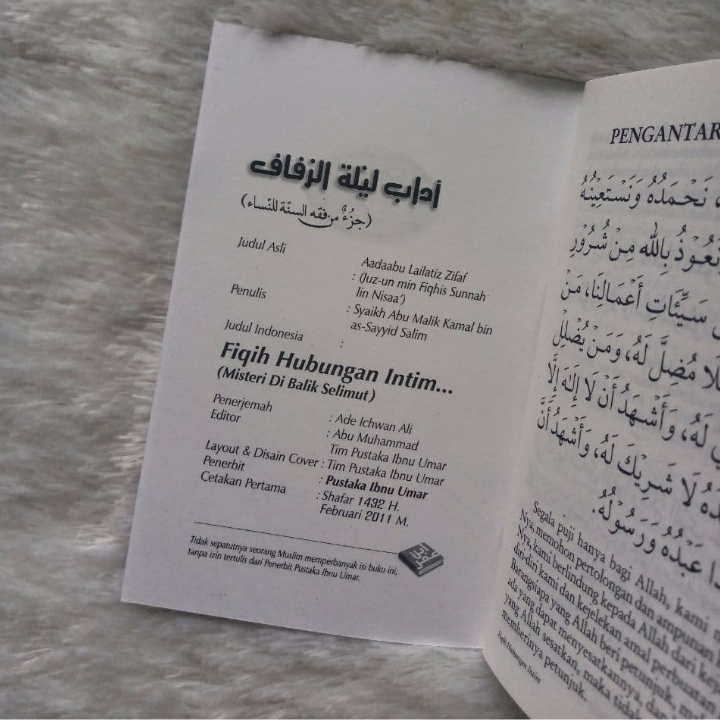 آداب ليلة الزفاف
(جزء من فقه السنة للنساء)
Judul Asli
Aadaabu Lailatiz Zifaf
: (Juz-un min Fiqhis Sunnah
lin Nisaa')
Penulis
: Syaikh Abu Malik Kamal bin
as-Sayyid Salim
Judul Indonesia :
Fiqih Hubungan Intim...
(Misteri Di Balik Selimut)
Penerjemah : Ade Ichwan Ali
Editor : Abu Muhammad
Tim Pustaka Ibnu Umar
Layout & Disain Cover : Tim Pustaka Ibnu Umar
Penerbit : Pustaka Ibnu Umar
Cetakan Pertama : Shafar 1432 H.
Februari 2011 M.
Tidak sepatutnya seorang Muslim memperbanyak isi buku ini,
tanpa izin tertulis dari Penerbit Pustaka Ibnu Umar.
PENGANTAR
، نَحْمَدُهُ وَنَسْتَعِيْنُهُ
نَعُوْذُ بِاللهِ مِنْ شُرُوْرِ
سَيِّئَاتِ أَعْمَالِنَا، مَنْ
لَا مُضِلَّ لَهُ، وَمَنْ يُضْلِلْ
لَهُ، وَأَشْهَدُ أَنْ لَا إِلَهَ إِلَّا
دَهُ لَا شَرِيْكَ لَهُ، وَأَشْهَدُ أَنَّ
ا عَبْدُهُ وَرَسُوْلُهُ.
Segala puji hanya bagi Allah, kami
Nya, memohon pertolongan dan ampunan
Nya, kami berlindung kepada Allah dari
diri-diri kami dan kejelekan amal perbuatan
Barangsiapa yang Allah beri petunjuk,
ada yang dapat menyesatkannya, dan
yang Allah sesatkan, maka tidak
memberinya petunjuk.
Fiqih Hubungan Intim